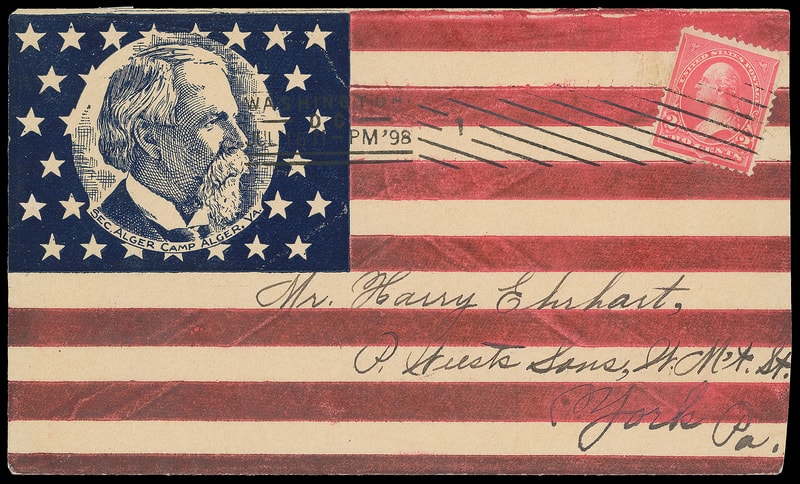 SEC. ALGER CAMP ALGER, VA.
WASHINGTON
D.C.
PM '98
UNITED STATES POSTAGE
2 2
TWO CENTS
Mr. Harry Ehrhart,
P. Wiest's Sons, W. M'k't. St.
York Pa.